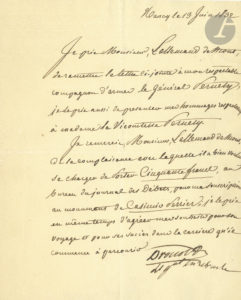 Nancy le 19 Juin 1832
Je prie Monsieur Lallemand de Mont,
de remettre la lettre ci-jointe à mon respectable
compagnon d'armes le Général Vernety
je le prie aussi de présenter mes hommages respectueux
à madame la Vicomtesse Vernety
Je remercie, Monsieur Lallemand de Mont,
de la complaisance avec laquelle il a bien voulu
se charger de porter Cinquante francs, au
bureau du journal des Débats, pour une souscription
au monument de Casimir Périer, je le prie
en même temps d'agréer mes souhaits pour son
voyage et pour ses succès dans la carrière qu'il
commence à parcourir
Drouot